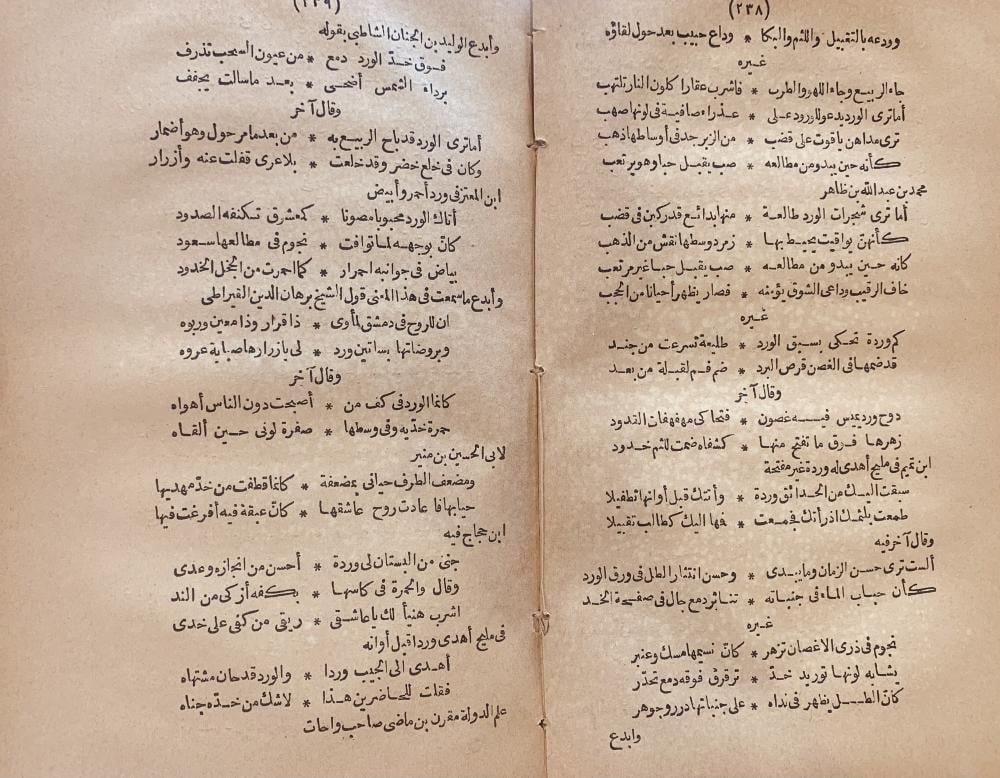 (٢٣٨)
وودعه بالتقبيل واللثم والبكا * وداع حبيب بعد حول لقاؤه
غيره
جاء الربيع وجاء اللهو والطرب * فاشرب عقارا كلون النار تلتهب
أما ترى الورد يدعو للورود على * عذراء صافية فى لونها صهب
ترى مداهن ياقوت على قضب * من الزبرجد فى أوساطها ذهب
كأنه حين يبدو من مطالعه * صب يقبل حبا وهو يرتعب
محمد بن عبد الله بن طاهر
أما ترى شجرات الورد طالعة * منها بدائع قد ركبن فى قضب
كأنهن يواقيت يحيط بها * زمرد وسطها نقش من الذهب
كانه حين يبدو من مطالعه * صب يقبل حبا غير مرتعب
خاف الرقيب وداعى الشوق يؤمنه * فصار يظهر أحيانا من الحجب
غيره
كم وردة تحكى بسبق الورد * طليعة تسرعت من جند
قد ضمها فى الغصن قرص البرد * ضم فم لقبلة من بعد
وقال آخر
دوح ورد يميس فيه غصون * فتحاكى مهفهفات القدود
زهرها فرق ما تفتح منها * كشفاه ضمت للثم خدود
ابن تميم فى مليح أهدى له وردة غير مفتحة
سبقت اليك من الحدائق وردة * وأتتك قبل أوانها تطفيلا
طمعت بلثمك اذ رأتك فجمعت * فها اليك كطالب تقبيلا
وقال آخر فيه
ألست ترى حسن الزمان وما يبدى * وحسن انتثار الطل فى ورق الورد
كأن حباب الماء فى جنباته * تناثر دمع جال فى صفحة الخد
غيره
نجوم فى ذرى الاغصان تزهر * كان نسيمها مسك وعنبر
يشابه لونها توريد خد * ترقرق فوقه دمع تحدر
كان الطل يظهر فى نداه * على جنباتها در وجوهر
وابدع
(٢٣٩)
وأبدع الوليد بن الجنان الشاطبى بقوله
فوق خد الورد دمع * من عيون السحب تذرف
برداء الشمس أضحى * بعد ما سالت يجفف
وقال آخر
أما ترى الورد قد باح الربيع به * من بعد ما مر حول وهو أضمار
وكان فى خلع خضر وقد خلعت * بلا عرى قفلت عنه وأزرار
ابن المعتز فى ورد أحمر وأبيض
أتاك الورد محبوبا مصونا * كمعشوق تكنفه الصدود
كان بوجهه لما توافت * نجوم فى مطالعها سعود
بياض فى جوانبه احمرار * كما احمرت من الخجل الخدود
وأبدع ما سمعت فى هذا المعنى قول الشيخ برهان الدين القيراطى
ان للروح فى دمشق لمأوى * ذا قرار وذا معين وربوه
وبروضاتها بساتين ورد * لى بازرارها صبابة عروه
وقال آخر
كانما الورد فى كف من * أصبحت دون الناس أهواه
حمرة خديه وفى وسطها * صفرة لونى حين ألقاه
لابى الحسين بن منير
ومضعف الطرف حيانى بمضعفة * كانما قطفت من خد مهديها
حيا بها فاعادت روح عاشقها * كان عبقة فيه أفرغت فيها
ابن حجاج فيه
جنى من البستان لى وردة * أحسن من انجازه وعدى
وقال والخمرة فى كاسها * بكفه أزكى من الند
اشرب هنيأ لك يا عاشقى * ريقى من كفى على خدى
فى مليح أهدى وردا قبل أوانه
أهدى الى الحبيب وردا * والورد قد حان مشتهاه
فقلت للحاضرين هذا * لا شك من خده جناه
علم الدولة مقرن بن ماضى صاحب واحات